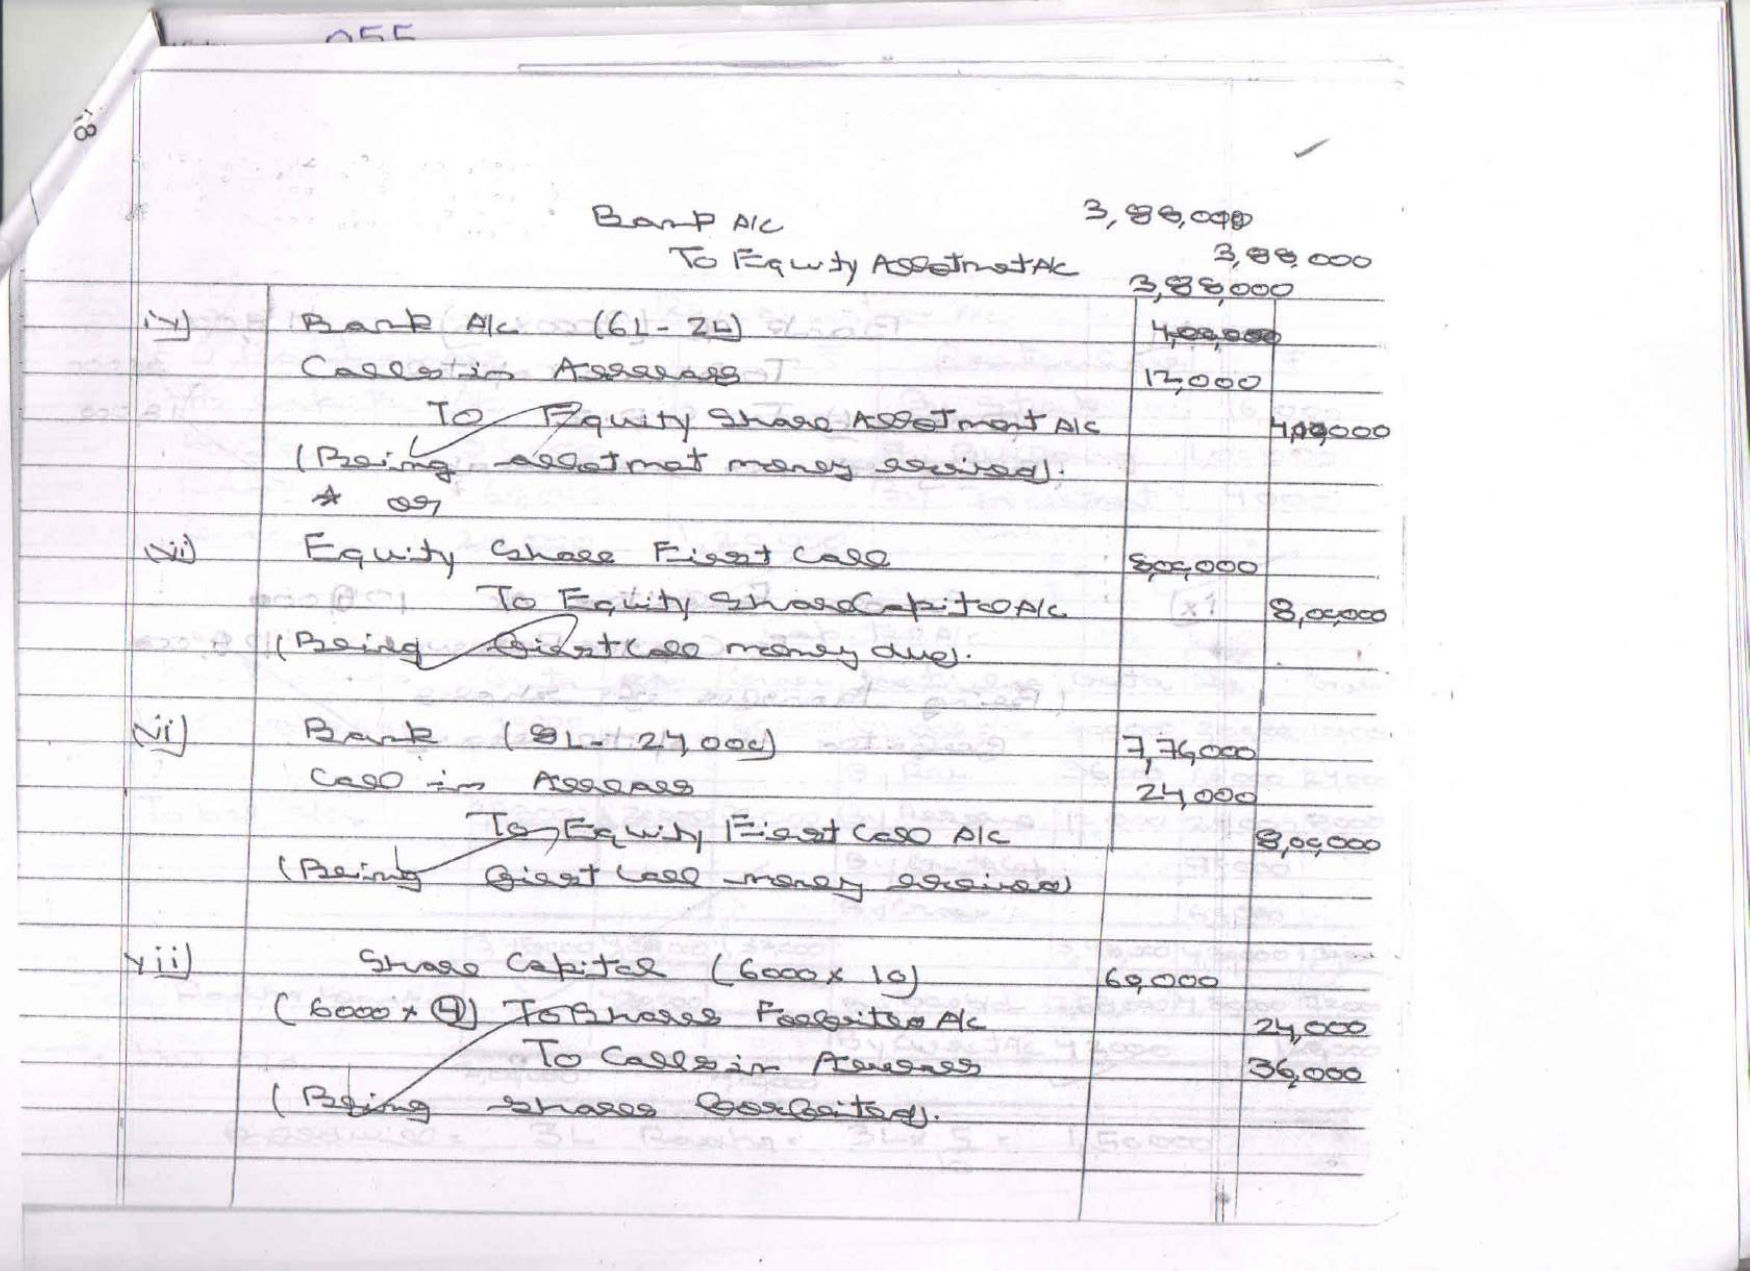 Bank A/c 3,88,000
To Equity Allotmet A/c 3,88,000
3,88,000
iv) Bank A/c (6L - 2L) 4,00,000
Calls in Arrears 12,000
To Equity Share Allotment A/c 4,00,000
(Being allotmet money received).
* or
v) Equity Share First Call 8,00,000
To Equity Share Capital A/c 8,00,000
(Being first call money due).
vi) Bank (8L - 24,000) 7,76,000
Call in Arrears 24,000
To Equity First Call A/c 8,00,000
(Being first call money received)
vii) Share Capital (6000 x 10) 60,000
(6000 x 4) To Shares Forfeited A/c 24,000
To Calls in Arrears 36,000
(Being shares forfeited).